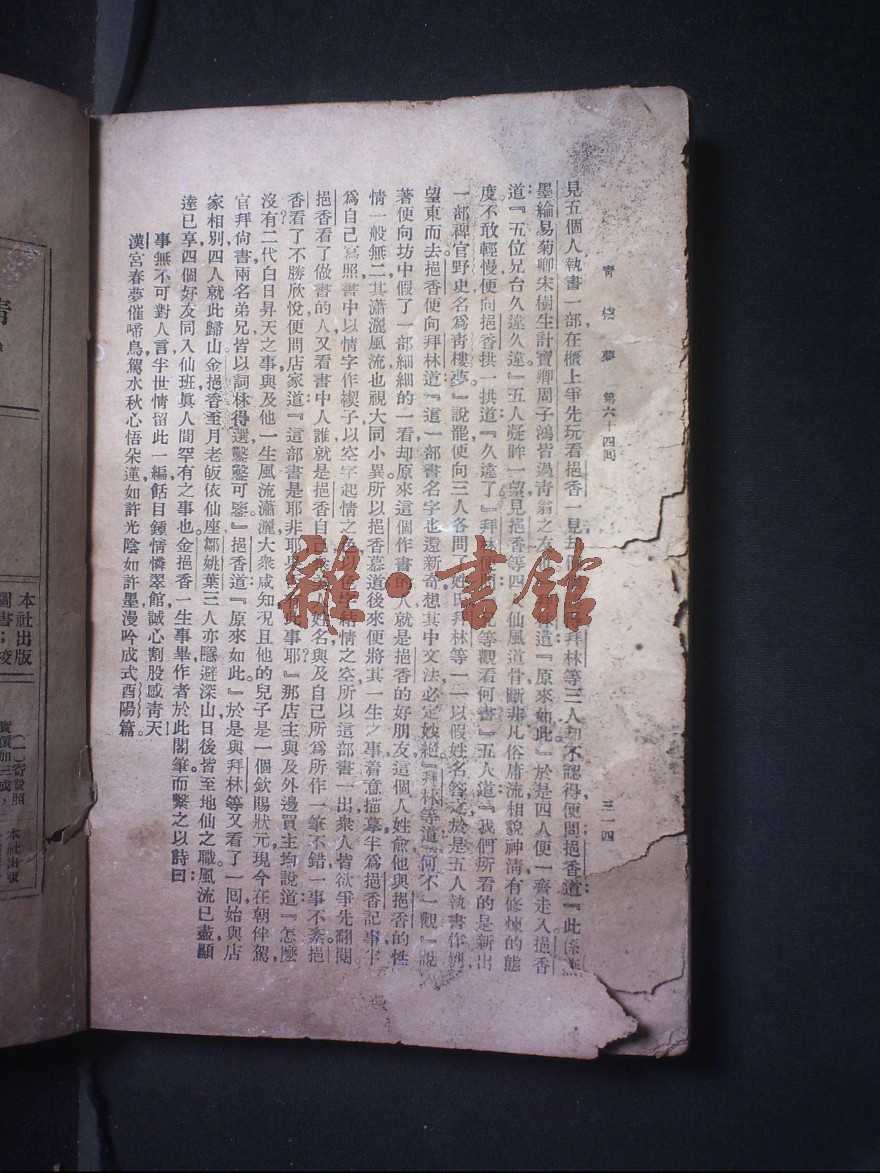 青樓夢 第六十四回 三一四
見五個人執書一部在櫃上爭先玩看挹香一見却 拜林等三人却不認得便問挹香道『此係
墨綸易菊卿宋樹生計寶卿周子鴻皆過青翁之友 道『原來如此』於是四人便一齊走入挹香
道『五位兄台久違久違』五人凝眸一望見挹香等四人仙風道骨斷非凡俗庸流相貌神清有修煉的態
度不敢輕慢便向挹香拱一拱道『久違了』拜林便問 兄等觀看何書』五人道『我們所看的是新出
一部稗官野史名爲青樓夢』說罷便向三人各問 姓氏拜林等一一以假姓名 之於是五人執書作別
望東而去挹香便向拜林道『這一部書名字也還新奇想其中文法必定妙絕』拜林等道『何不一觀』說
著便向坊中假了一部細細的一看却原來這個作書的人就是挹香的好朋友這個人姓俞他與挹香的性
情一般無二其瀟灑風流也視大同小異所以挹香慕道後來便將其一生之事着意描摹半爲挹香記事半
爲自己寫照書中以情字作楔子以空字起情之色以色字結情之空所以這部書一出衆人皆欲爭先翻閱
挹香看了做書的人又看書中人誰就是挹香自己 姓名與及自己所爲所作一筆不錯一事不紊挹
香看了不勝欣悅便問店家道『這部書是耶非耶果 此事耶』那店主與及外邊買主均說道『怎麼
沒有二代白日昇天之事與及他一生風流瀟灑大衆咸知況且他的兒子是一個欽賜狀元現今在朝伴駕
官拜尙書兩名弟兄皆以詞林得選鑿鑿可鑒』挹香道『原來如此』於是與拜林等又看了一回始與店
家相別四人就此歸山金挹香至月老皈依仙座鄒姚葉三人亦隱避深山日後皆至地仙之職風流已盡顯
達已享四個好友同入仙班眞人間罕有之事也金挹香一生事畢作者於此閣筆而繫之以詩曰
事無不可對人言半世情留此一編餂目鍾情憐翠館誠心割股感靑天
漢宮春夢催啼鳥駕水秋心悟朵蓮如許光陰如許墨漫吟成式酉陽篇
靑
本社出版
圖書
雜·書館